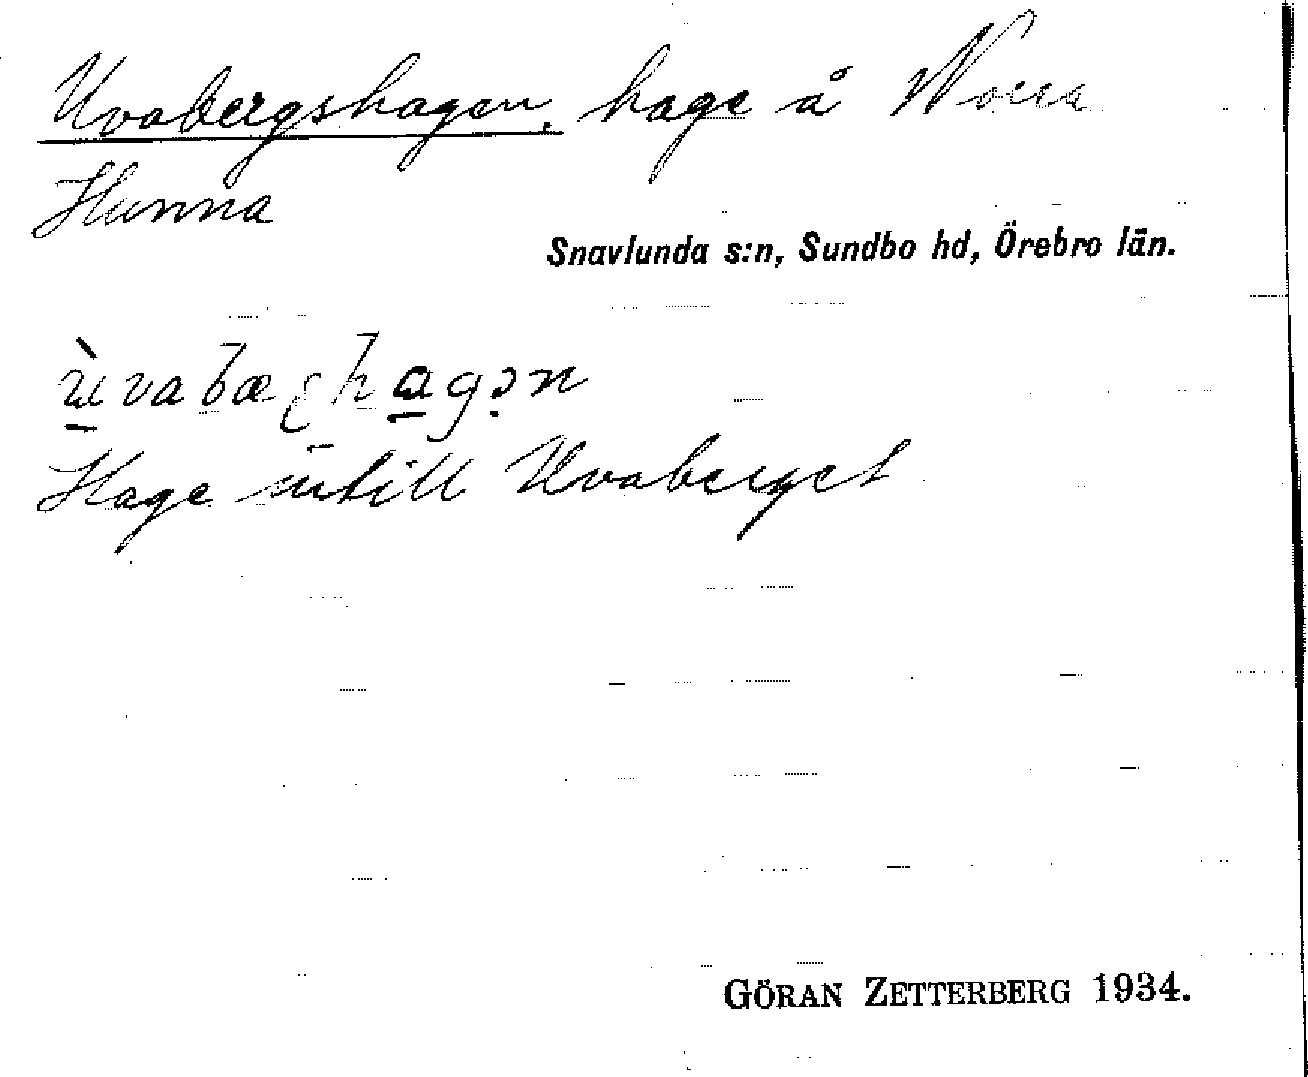 Uvabergshagen, hage å Norra
Hunna
Snavlunda s:n, Sundbo hd, Örebro län.
Hage intill Uvaberget
GÖRAN ZETTERBERG 1934.